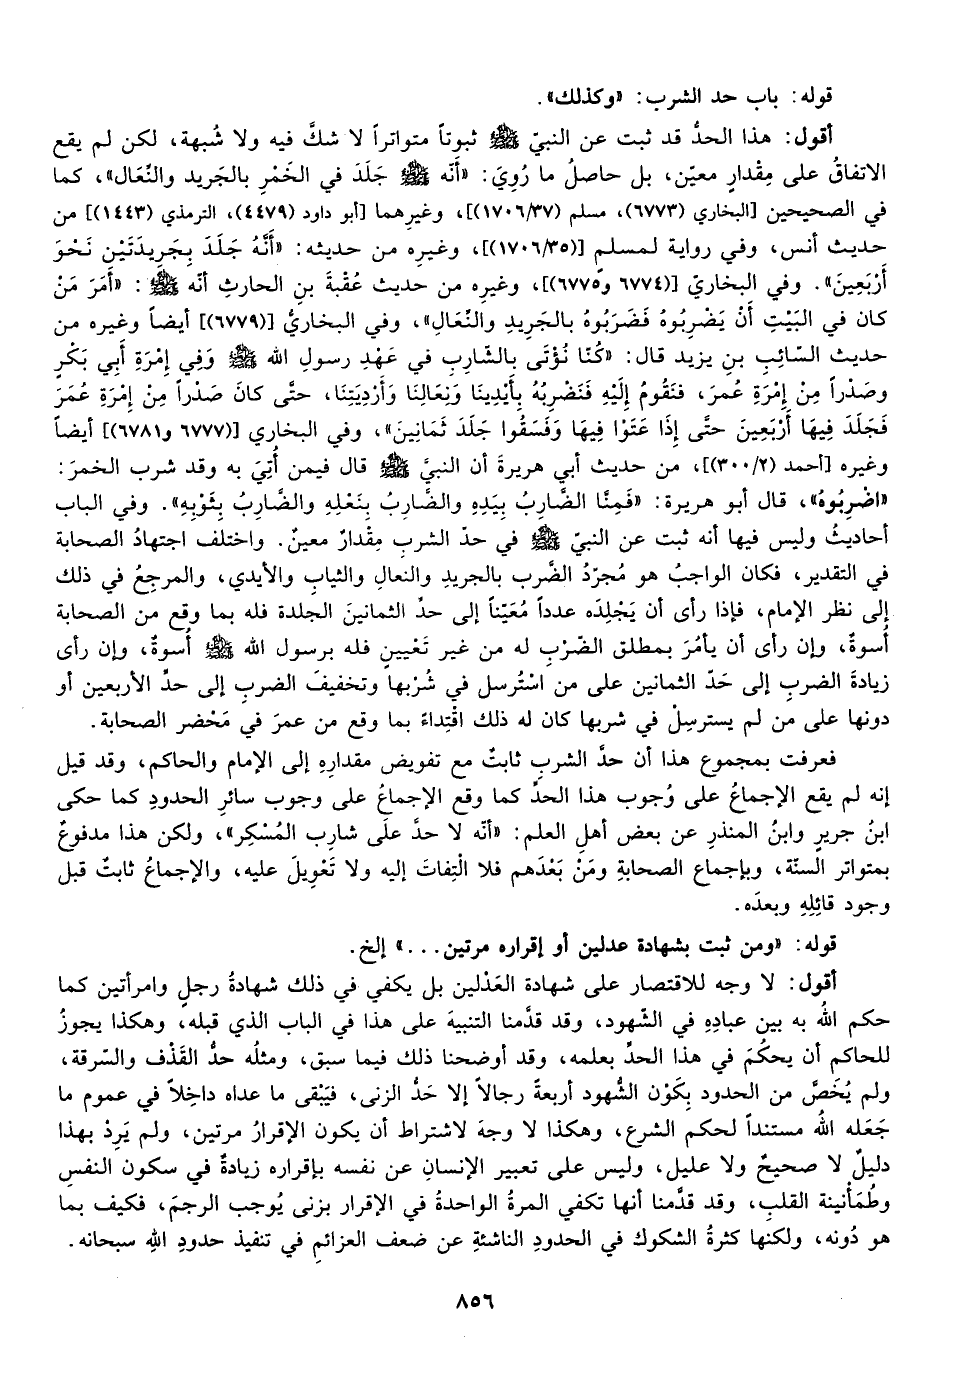 قوله: باب حد الشرب: «وكذلك».
أقول: هذا الحدُّ قد ثبت عن النبيّ ﷺ ثبوتاً متواتراً لا شكَّ فيه ولا شُبهة، لكن لم يقع
الاتفاقُ على مِقْدارٍ معيّن، بل حاصلُ ما رُوِيَ: «أنّه ﷺ جَلَدَ في الخَمْرِ بالجَريد والنِّعَال»، كما
في الصحيحين [البخاري (٦٧٧٣)، مسلم (١٧٠٦/٣٧)]، وغيرِهما [أبو داود (٤٤٧٩)، الترمذي (١٤٤٣)] من
حديث أنس، وفي رواية لمسلمٍ [(١٧٠٦/٣٥)]، وغيرِه من حديثه: «أَنَّهُ جَلَدَ بِجَرِيدَتَيْنِ نَحْوَ
أَرْبَعِينَ». وفي البخاريّ [(٦٧٧٤ و٦٧٧٥)]، وغيرِه من حديث عُقْبةَ بنِ الحارثِ أنّه ﷺ: «أَمَرَ مَنْ
كان في البَيْتِ أَنْ يَضْرِبُوهُ فَضَرَبُوهُ بالجَرِيدِ والنِّعَالِ»، وفي البخاريُّ [(٦٧٧٩)] أيضاً وغيره من
حديث السّائِبِ بنِ يزيد قال: «كُنَّا نُؤْتَى بالشّارِبِ في عَهْدِ رسولِ الله ﷺ وَفِي إِمْرَةِ أَبِي بَكْرٍ
وصَدْراً مِنْ إِمْرَةِ عُمرَ، فنَقُومُ إِلَيْهِ فَنَضْرِبُهُ بِأَيْدِينَا وَنِعَالِنَا وَأَرْدِيَتِنَا، حتَّى كانَ صَدْراً مِنْ إِمْرَةِ عُمَرَ
فَجَلَدَ فِيهَا أَرْبَعِينَ حتَّى إِذَا عَتَوْا فِيهَا وَفَسَقُوا جَلَدَ ثَمَانِينَ»، وفي البخاري [(٦٧٧٧ و٦٧٨١)] أيضاً
وغيره [أحمد (٣٠٠/٢)]، من حديث أبي هريرةَ أن النبيَّ ﷺ قال فيمن أُتِيَ به وقد شرب الخمرَ:
«اضْرِبُوهُ»، قال أبو هريرة: «فَمِنَّا الضَّارِبُ بِيَدِهِ والضَّارِبُ بِنَعْلِهِ والضَّارِبُ بِثَوْبِهِ». وفي الباب
أحاديثُ وليس فيها أنه ثبت عن النبيّ ﷺ في حدّ الشربِ مِقْدارٌ معينٌ. واختلف اجتهادُ الصحابة
في التقدير، فكان الواجبُ هو مُجرّدُ الضَّرب بالجريدِ والنعالِ والثيابِ والأيدي، والمرجِعُ في ذلك
إلى نظر الإمام، فإذا رأى أن يَجْلِدَه عدداً مُعَيّناً إلى حدِّ الثمانينَ الجلدة فله بما وقع من الصحابة
أُسوةٌ، وإن رأى أن يأمُرَ بمطلق الضّرْبِ له من غير تَعْيينٍ فله برسول الله ﷺ أُسوةٌ، وإن رأى
زيادةَ الضربِ إلى حَدّ الثمانين على من اسْتُرسل في شُرْبها وتخفيفَ الضربِ إلى حدِّ الأربعين أو
دونها على من لم يسترسِلْ في شربها كان له ذلك اقْتِداءً بما وقع من عمرَ في مَحْضر الصحابة.
فعرفت بمجموع هذا أن حدَّ الشربِ ثابتٌ مع تفويض مقدارِهِ إلى الإمام والحاكم، وقد قيل
إنه لم يقع الإجماعُ على وُجوب هذا الحدِّ كما وقع الإجماعُ على وجوب سائرِ الحدودِ كما حكى
ابنُ جريرٍ وابنُ المنذرِ عن بعض أهلِ العلم: «أنّه لا حدَّ علَى شارِب المُسْكِر»، ولكن هذا مدفوعٌ
بمتواتر السنّة، وبإجماع الصحابةِ ومَنْ بَعْدَهم فلا الْتِفاتَ إليه ولا تَعْوِيلَ عليه، والإجماعُ ثابتٌ قبل
وجود قائِلِهِ وبعدَه.
قوله: «ومن ثبت بشهادة عدلين أو إقراره مرتين...» إلخ.
أقول: لا وجه للاقتصار على شهادة العَدْلين بل يكفي في ذلك شهادةُ رجلٍ وامرأتين كما
حكم اللهُ به بين عبادِهِ في الشّهود، وقد قدَّمنا التنبيهَ على هذا في الباب الذي قبله، وهكذا يجوزُ
للحاكم أن يحكُمَ في هذا الحدِّ بعلمه، وقد أوضحنا ذلك فيما سبق، ومثلُه حدُّ القَذْف والسّرقة،
ولم يُخَصَّ من الحدود بِكَوْن الشُّهود أربعةً رجالاً إلا حَدُّ الزنى، فيَبْقى ما عداه داخِلاً في عموم ما
جَعَله اللهُ مستنداً لحكم الشرع، وهكذا لا وجهَ لاشتراط أن يكون الإقرارُ مرتين، ولم يَرِدْ بهذا
دليلٌ لا صحيحٌ ولا عليل، وليس على تعبير الإنسانِ عن نفسه بإقراره زيادةٌ في سكون النفسِ
وطُمَأْنينة القلبِ، وقد قدَّمنا أنها تكفي المرةُ الواحدةُ في الإقرار بزنى يُوجب الرجمَ، فكيف بما
هو دُونه، ولكنها كثرةُ الشكوك في الحدودِ الناشئةِ عن ضعف العزائمِ في تنفيذ حدودِ اللهِ سبحانه.
٨٥٦